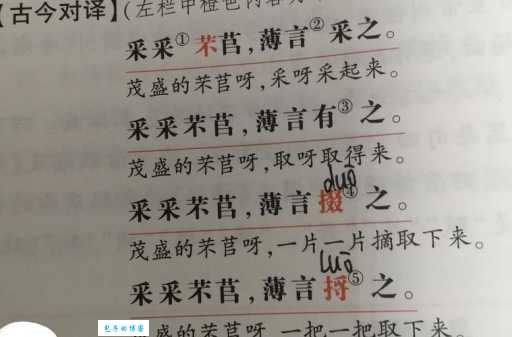 【古今对译】(左栏中橙色内容
采采①芣苢，薄言②采之。
茂盛的芣苢呀，采呀采起来。
采采芣苢，薄言有③之。
茂盛的芣苢呀，取呀取得来。
duō
采采芣苢，薄言掇④之。
茂盛的芣苢呀，一片一片摘取下来。
luō
采采芣苢，薄言捋⑤之。
茂盛的芣苢呀，一把一把取下来。